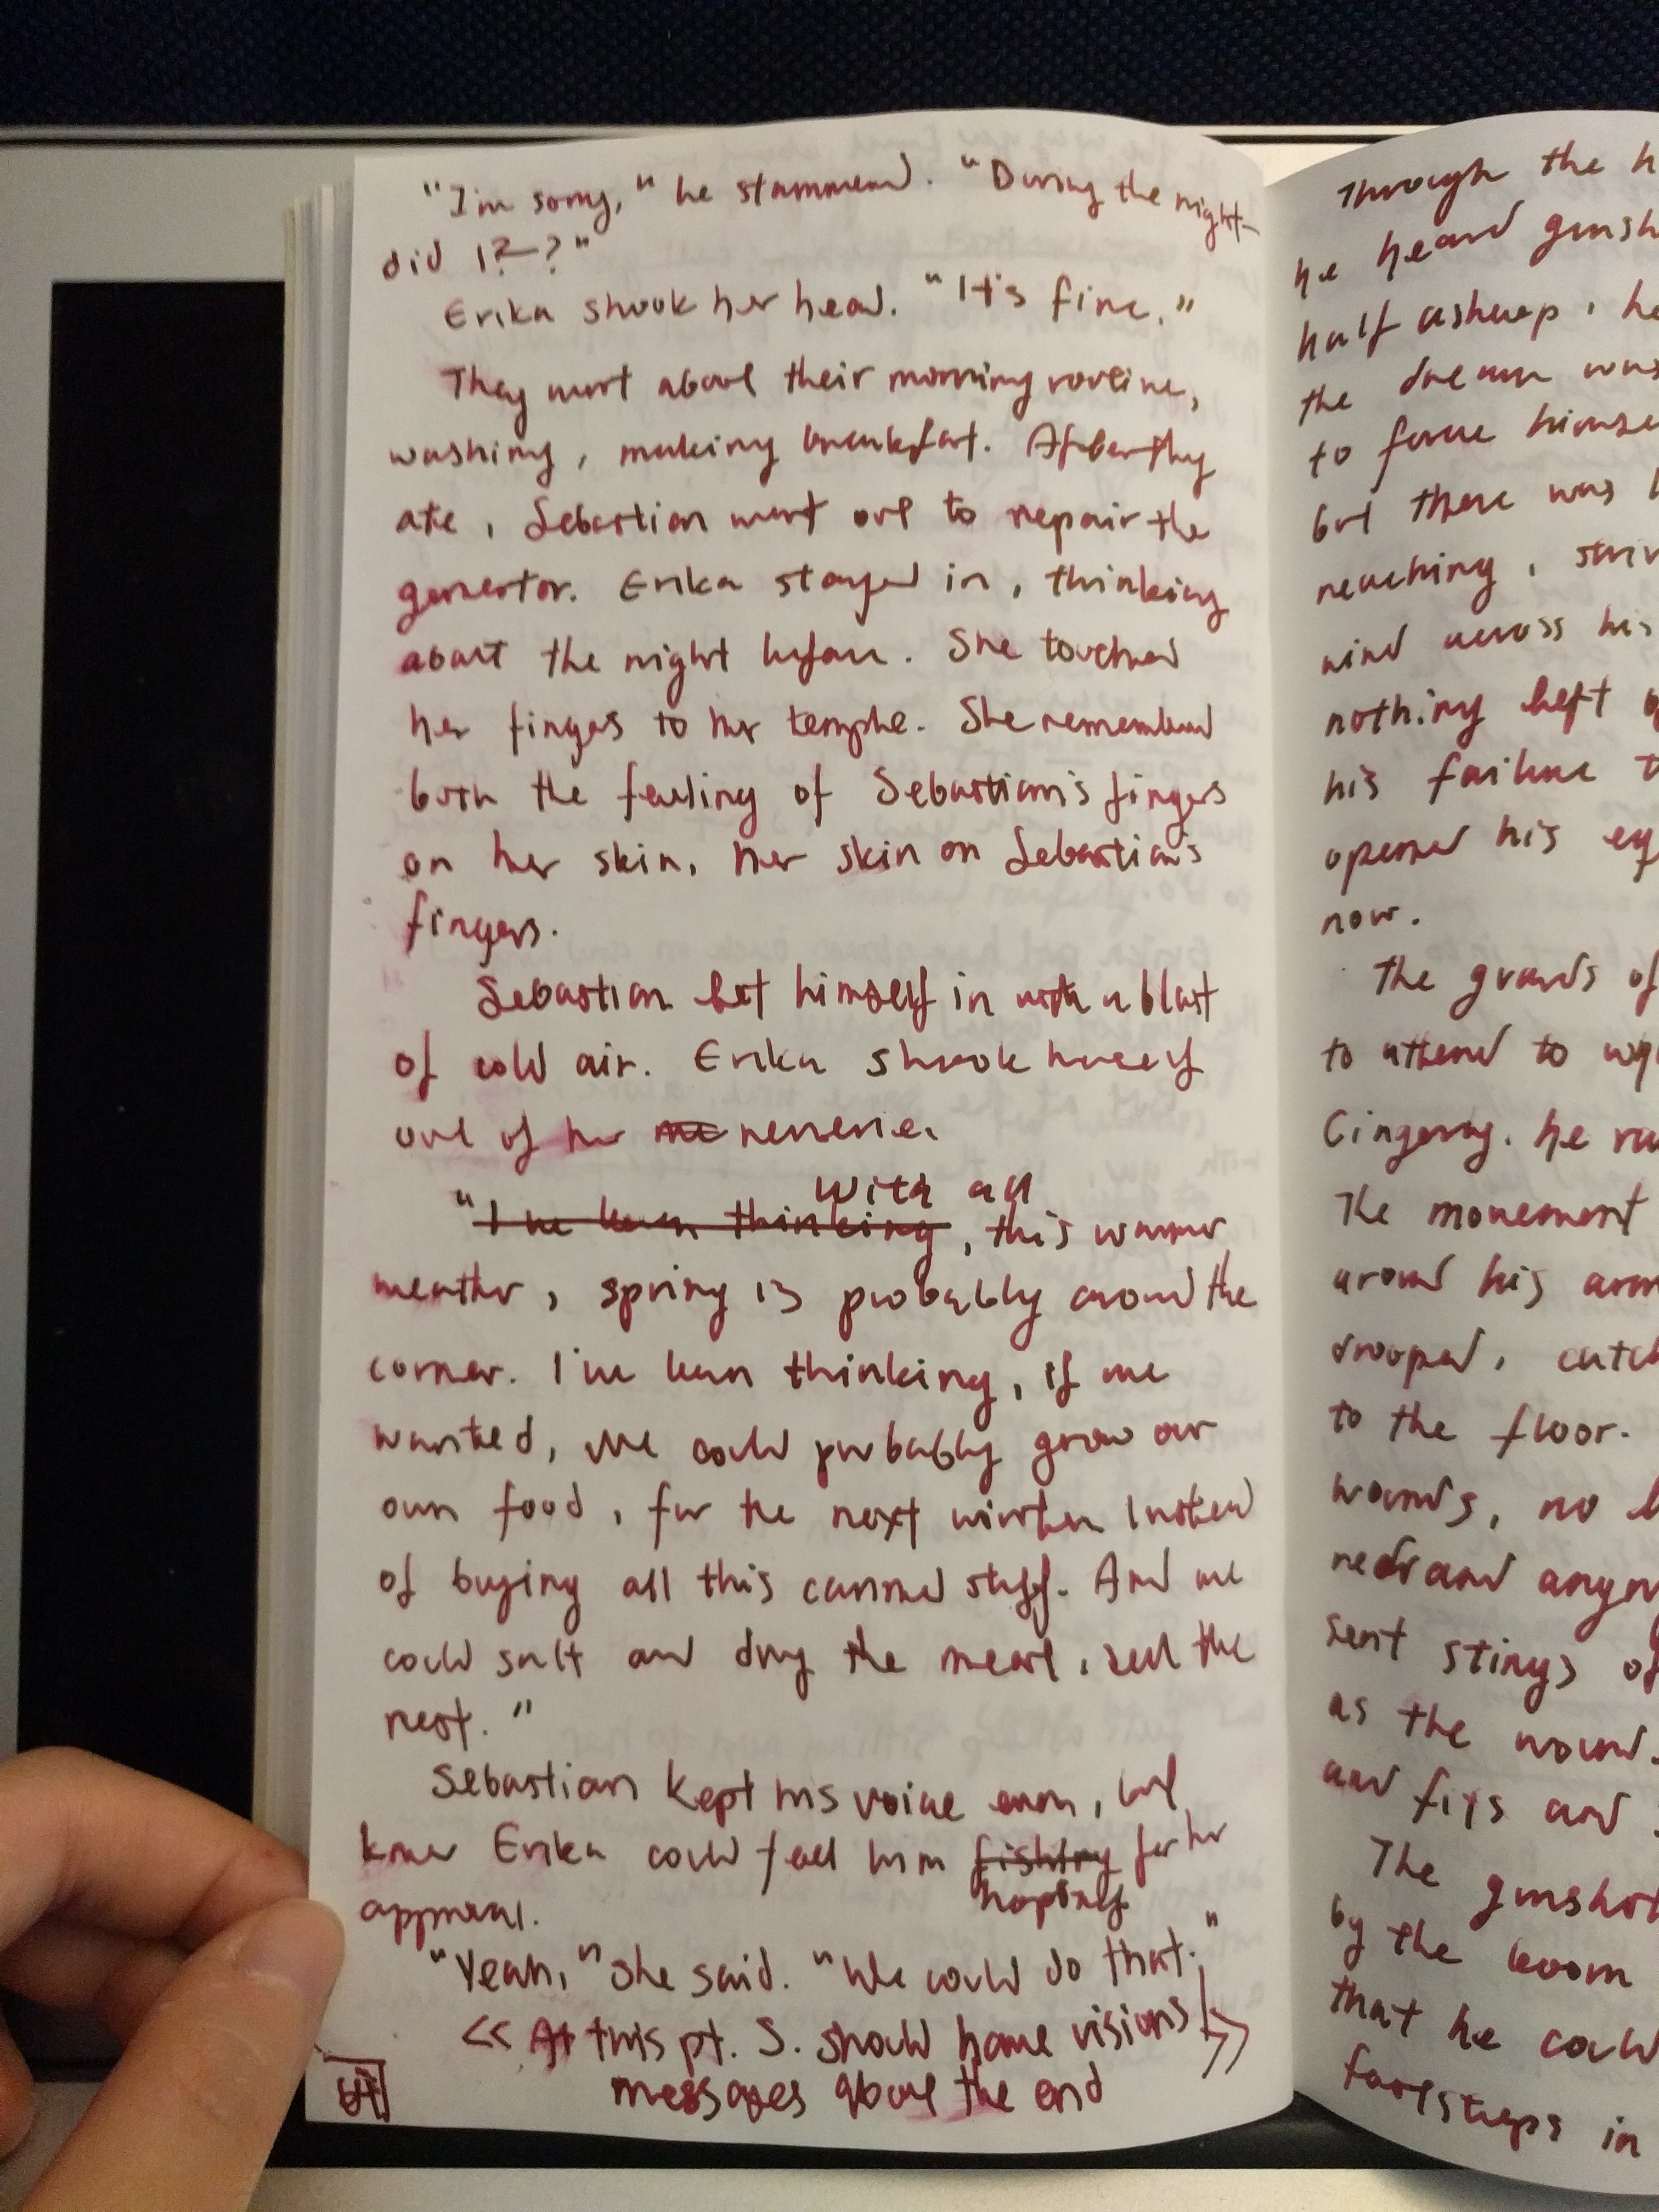 "I'm sorry," he stammered. "During the night–
did I?–?"
Erika shook her head. "It's fine."
They went about their morning routine,
washing, making breakfast. After they
ate, Sebastian went out to repair the
generator. Erika stayed in, thinking
about the night before. She touched
her fingers to her temple. She remembered
both the feeling of Sebastian's fingers
on her skin, her skin on Sebastian's
fingers.
Sebastian let himself in with a blast
of cold air. Erika shook herself
out of her reverie.
With all
"I've been thinking, this warmer
weather, spring is probably around the
corner. I've been thinking, if we
wanted, we could probably grow our
own food, for the next winter instead
of buying all this canned stuff. And we
could salt and dry the meat, sell the
rest."
Sebastian kept his voice even, but
knew Erika could feel him fishing for her
hoping
approval.
"Yeah," she said. "We could do that."
<< At this pt. S. should have visions/ >>
messages about the end
Through the h
he heard gunsh
half asleep, he
the dream was
to force himse
but there was l
reaching, striv
wind across his
nothing left o
his failure t
opened his ey
now.
The guards of
to attend to
Gingerly, he ra
The movement
around his arm
drooped, catch
to the floor.
wounds, no b
red and angry
sent stings of
as the wound
and fits and
The gunshot
by the boom
that he could
footsteps in